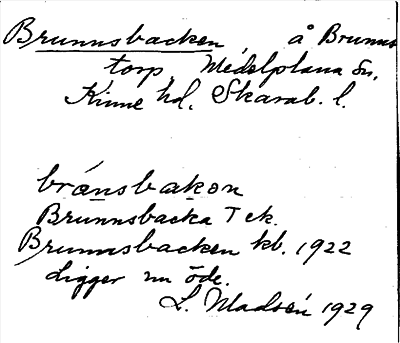 Brunnsbacken å Brunns
torp, Medelplana sn,
Kinne hd. Skarab. l.
brånsbakon
Brunnsbacka T ek.
Brunnsbacken kb. 1922
ligger nu öde.
L. Madsén 1929